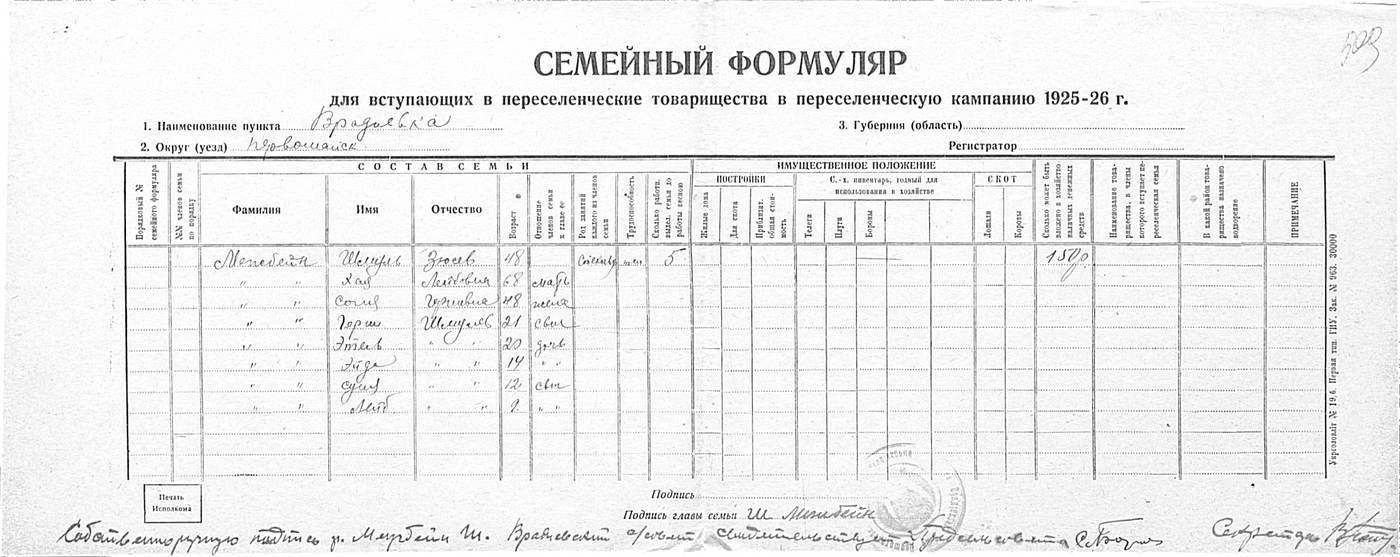 509
СЕМЕЙНЫЙ ФОРМУЛЯР
для вступающих в переселенческие товарищества в переселенческую кампанию 1925-26 г.
1. Наименование пункта Врадиевка 3. Губерния (область)
2. Округ (уезд) Первомайск Регистратор
СОСТАВ СЕМЬИ ИМУЩЕСТВЕННОЕ ПОЛОЖЕНИЕ
ПОСТРОЙКИ С.-х. инвентарь, годный для использования в хозяйстве СКОТ
Порядковый № семейного формуляра №№ членов семьи по порядку Фамилия Имя Отчество Возраст Отношение членов семьи к главе ее Род занятий каждого из членов семьи Трудоспособность Сколько работн. выдел. семья до работы весною Жилые дома Для скота Приблизит. общая стоимость Телеги Плуги Бороны Лошади Коровы Сколько может быть вложено в хозяйство наличных денежных средств Наименование товарищества, в члены которого вступает переселенческая семья В какой район товарищества назначено водворение ПРИМЕЧАНИЕ
Шмуль Зюсев 48 5 150р
" " Хая Лейбовна 68 мать
" " Сония 48 жена
" " Герш Шмулев 21 сын
" " Этель " " 20 дочь
" " Эйда " " 14 " "
" " " " 12 сын
" " Лейб " " 9 " "
Укрголовліт № 19.6. Первая тип. ГИУ. Зак. № 963. 30000
Печать Исполкома
Подпись
Подпись главы семьи Ш.
Собственноручную подпись Ш. Врадиевский с/совет свидетельствует Секретарь